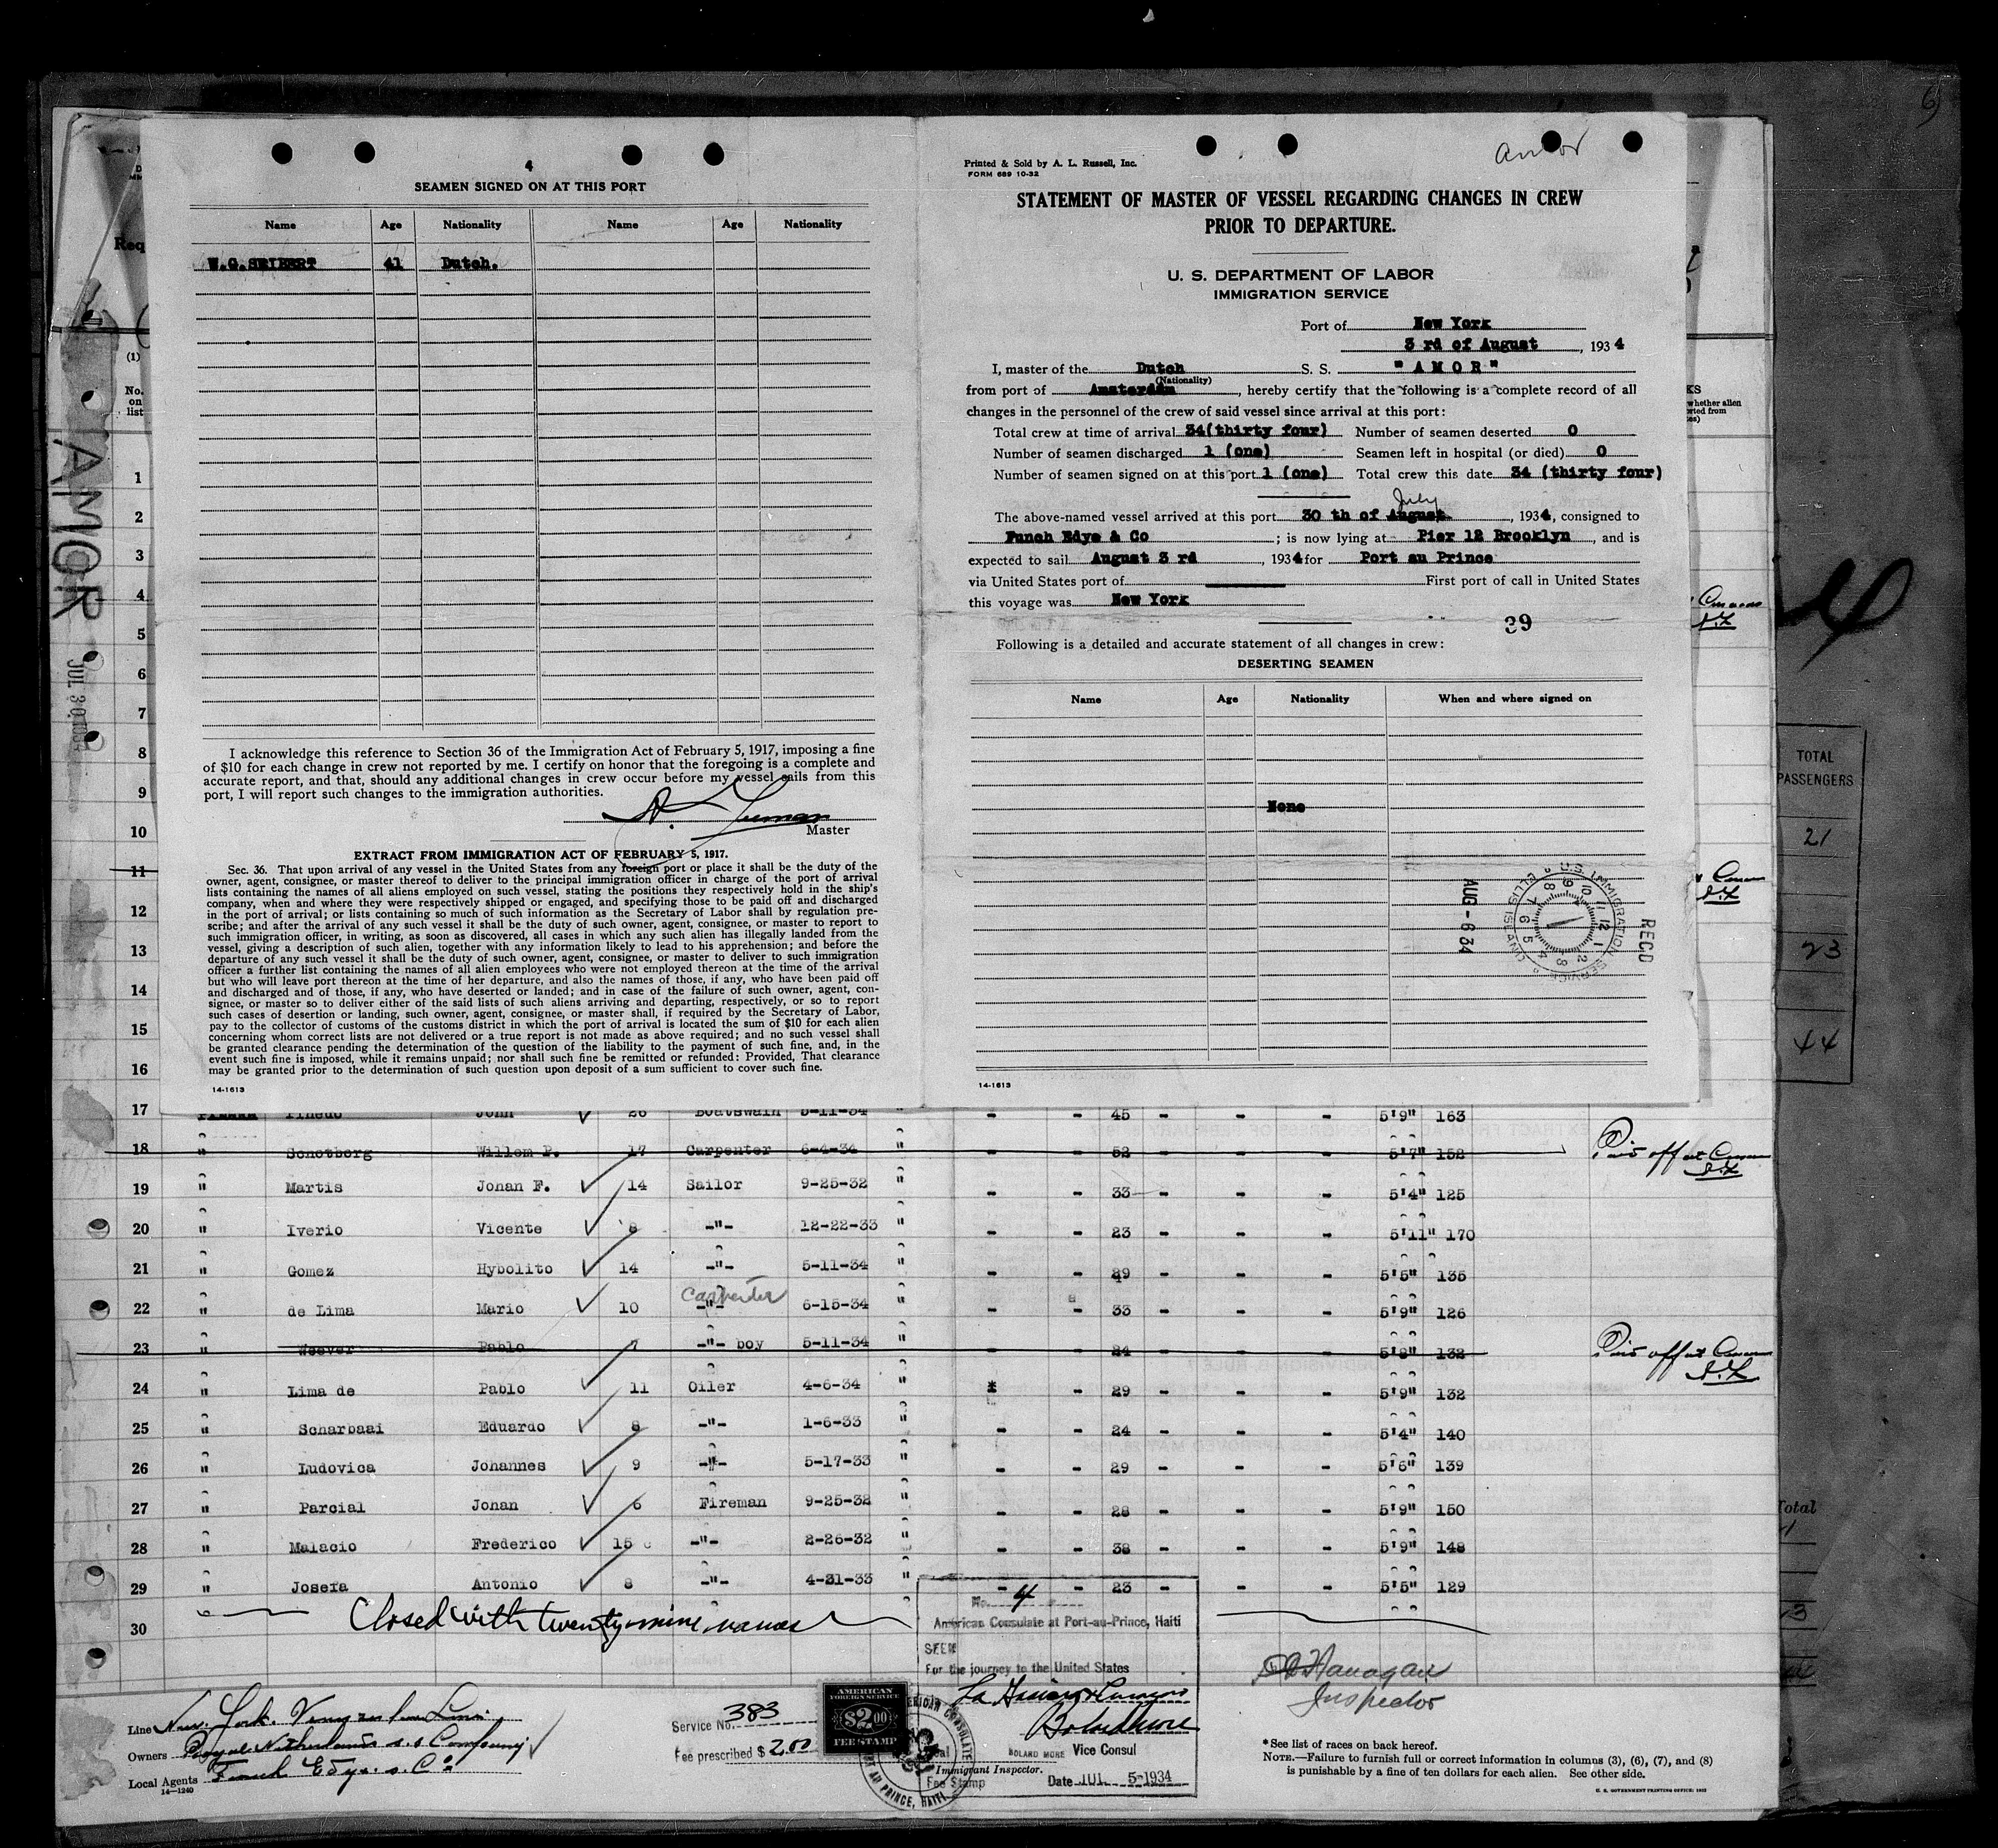 4
SEAMEN SIGNED ON AT THIS PORT
Name Age Nationality Name Age Nationality
W.G.SEIBERT 41 Dutch.
I acknowledge this reference to Section 36 of the Immigration Act of February 5, 1917, imposing a fine
of $10 for each change in crew not reported by me. I certify on honor that the foregoing is a complete and
accurate report, and that, should any additional changes in crew occur before my vessel sails from this
port, I will report such changes to the immigration authorities.
Master
EXTRACT FROM IMMIGRATION ACT OF FEBRUARY 5, 1917.
Sec. 36. That upon arrival of any vessel in the United States from any foreign port or place it shall be the duty of the
owner, agent, consignee, or master thereof to deliver to the principal immigration officer in charge of the port of arrival
lists containing the names of all aliens employed on such vessel, stating the positions they respectively hold in the ship's
company, when and where they were respectively shipped or engaged, and specifying those to be paid off and discharged
in the port of arrival; or lists containing so much of such information as the Secretary of Labor shall by regulation pre-
scribe; and after the arrival of any such vessel it shall be the duty of such owner, agent, consignee, or master to report to
such immigration officer, in writing, as soon as discovered, all cases in which any such alien has illegally landed from the
vessel, giving a description of such alien, together with any information likely to lead to his apprehension; and before the
departure of any such vessel it shall be the duty of such owner, agent, consignee, or master to deliver to such immigration
officer a further list containing the names of all alien employees who were not employed thereon at the time of the arrival
but who will leave port thereon at the time of her departure, and also the names of those, if any, who have been paid off
and discharged and of those, if any, who have deserted or landed; and in case of the failure of such owner, agent, con-
signee, or master so to deliver either of the said lists of such aliens arriving and departing, respectively, or so to report
such cases of desertion or landing, such owner, agent, consignee, or master shall, if required by the Secretary of Labor,
pay to the collector of customs of the customs district in which the port of arrival is located the sum of $10 for each alien
concerning whom correct lists are not delivered or a true report is not made as above required; and no such vessel shall
be granted clearance pending the determination of the question of the liability to the payment of such fine, and, in the
event such fine is imposed, while it remains unpaid; nor shall such fine be remitted or refunded: Provided, That clearance
may be granted prior to the determination of such question upon deposit of a sum sufficient to cover such fine.
14-1613
Amor
Printed & Sold by A. L. Russell, Inc.
FORM 689 10-32
STATEMENT OF MASTER OF VESSEL REGARDING CHANGES IN CREW
PRIOR TO DEPARTURE.
U. S. DEPARTMENT OF LABOR
IMMIGRATION SERVICE
Port of New York
3 rd of August, 1934
I, master of the Dutch S. S. "AMOR"
(Nationality)
from port of Amsterdam, hereby certify that the following is a complete record of all
changes in the personnel of the crew of said vessel since arrival at this port:
Total crew at time of arrival 34(thirty four) Number of seamen deserted 0
Number of seamen discharged 1 (one) Seamen left in hospital (or died) 0
Number of seamen signed on at this port 1 (one) Total crew this date 34 (thirty four)
July
The above-named vessel arrived at this port 30 th of August, 1934, consigned to
Funch Edye & Co; is now lying at Pier 12 Brooklyn, and is
expected to sail August 3 rd, 1934 for Port au Prince
via United States port of First port of call in United States
this voyage was New York
39
Following is a detailed and accurate statement of all changes in crew:
DESERTING SEAMEN
Name Age Nationality When and where signed on
None
REC'D
U.S. IMMIGRATION SERVICE ELLIS ISLAND
AUG - 6 34
14-1613
AMOR
JUL 30 1934
Req
(1)
No.
on
list
1
2
3
4
5
6
7
8
9
10
11
12
13
14
15
16
TOTAL
PASSENGERS
21
23
44
17 Pinedo John 26 Boatswain 5-11-34 " - - 45 - - - 5'9" 163
18 " Schotborg Willem P. 17 Carpenter 6-4-34 " - - 52 - - - 5'7" 152 Paid off at
19 " Martis Johan F. 14 Sailor 9-25-32 " - - 33 - - - 5'4" 125
20 " Iverio Vicente 8 -"- 12-22-33 " - - 23 - - - 5'11" 170
21 " Gomez Hybolito 14 -"- 5-11-34 " - - 29 - - - 5'5" 135
Carpenter
22 " de Lima Mario 10 -"- 6-15-34 " - - 33 - - - 5'9" 126
23 " Weever Pablo 7 -"- boy 5-11-34 " - - 24 - - - 5'8" 132 Paid off at
24 " Lima de Pablo 11 Oiler 4-6-34 " - 29 - - - 5'9" 132
25 " Scharbaai Eduardo 8 -"- 1-6-33 " - - 24 - - - 5'4" 140
26 " Ludovica Johannes 9 -"- 5-17-33 " - - 29 - - - 5'6" 139
27 " Parcial Johan 6 Fireman 9-25-32 " - - 28 - - - 5'9" 150
28 " Malacio Frederico 15 -"- 2-26-32 " - - 38 - - - 5'9" 148
29 " Josefa Antonio 8 -"- 4-21-33 " - - 23 - - - 5'5" 129
30 Closed with twenty nine names
No. 4
American Consulate at Port-au-Prince, Haiti
SEEN
For the journey to the United States
BOLARD MORE Vice Consul
Immigrant Inspector.
Fee Stamp Date JUL 5-1934
Flanagan
Inspector
Line New York Venezuela Line
Owners Royal Netherlands s.s Company
Local Agents Funch Edye & Co
14-1240
Service No. 383
Fee prescribed $ 2.00
AMERICAN
FOREIGN SERVICE
$2.00
FEE STAMP
*See list of races on back hereof.
NOTE.—Failure to furnish full or correct information in columns (3), (6), (7), and (8)
is punishable by a fine of ten dollars for each alien. See other side.